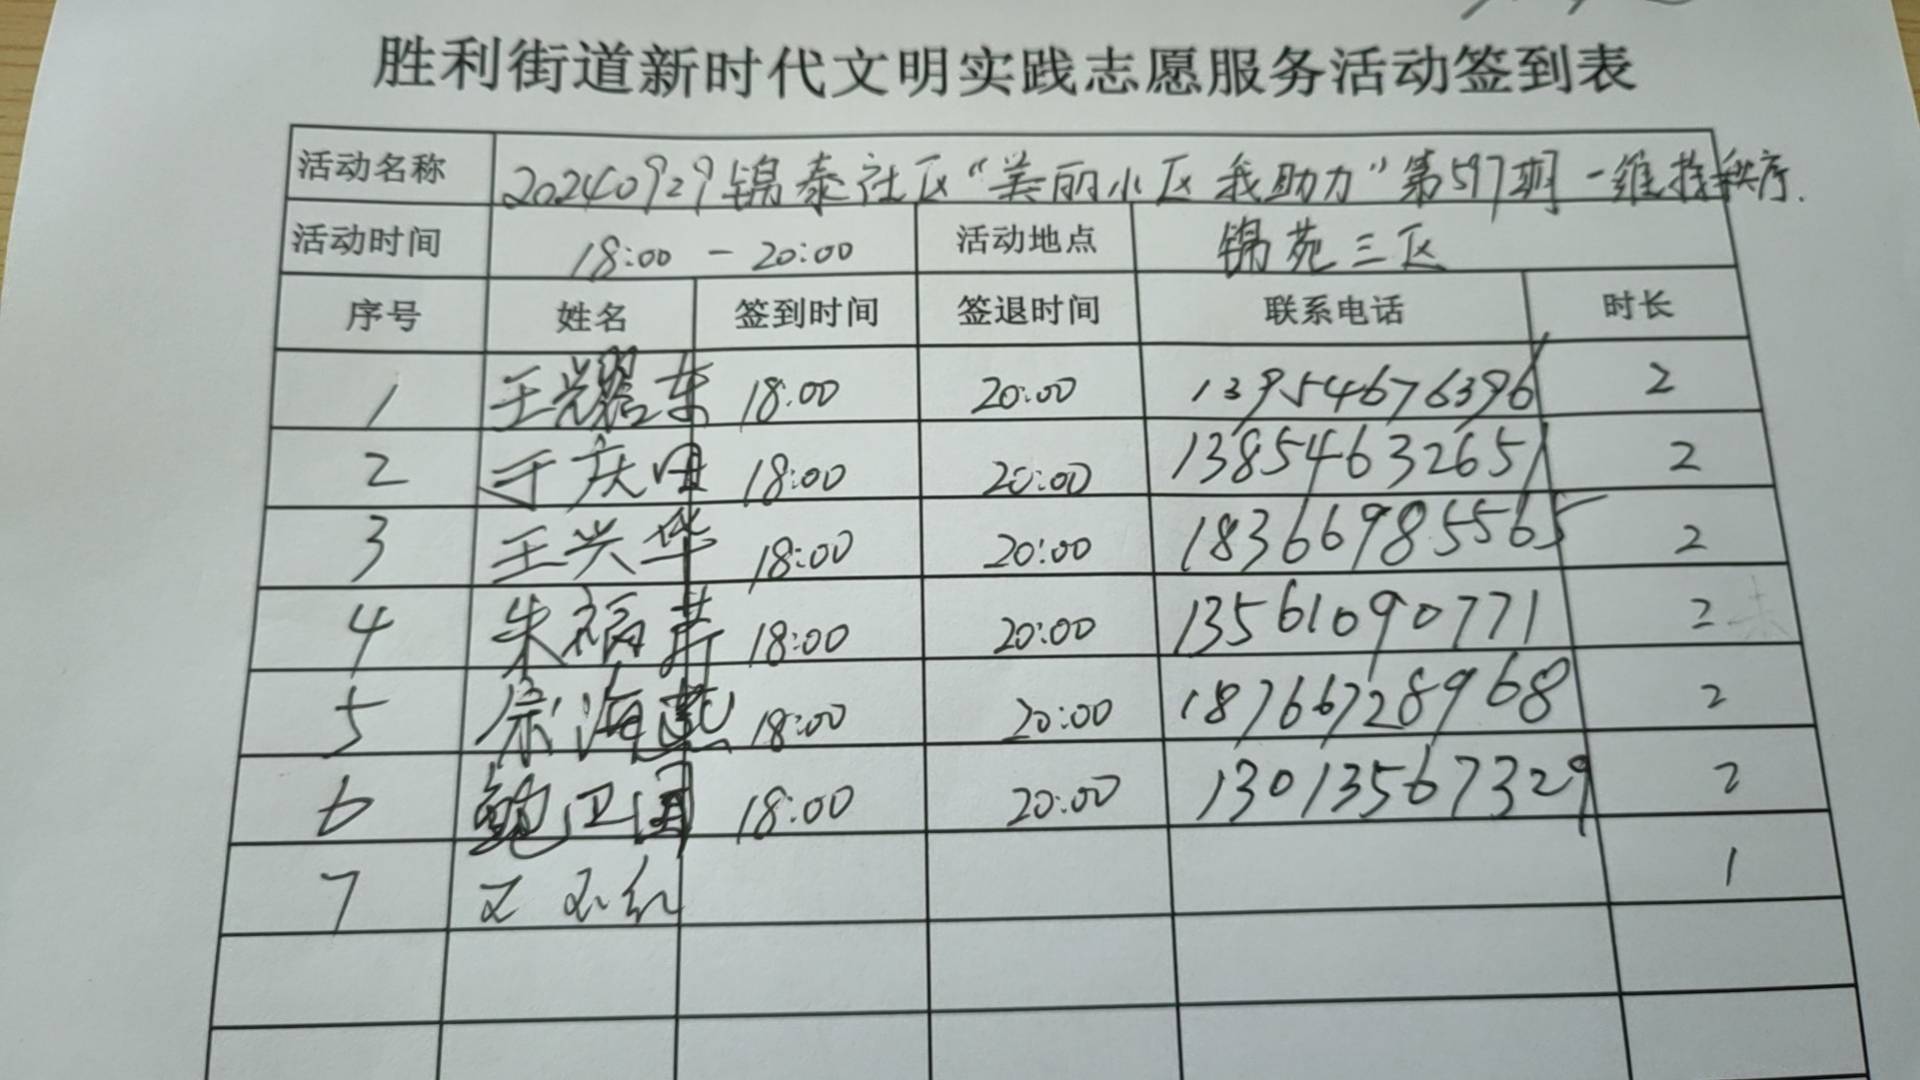 胜利街道新时代文明实践志愿服务活动签到表
活动名称 20240929锦泰社区“美丽小区我助力”第597期-维持秩序.
活动时间 18:00 - 20:00 活动地点 锦苑三区
序号 姓名 签到时间 签退时间 联系电话 时长
1 王耀东 18:00 20:00 13954676396 2
2 于庆田 18:00 20:00 13854632651 2
3 王兴华 18:00 20:00 18366985565 2
4 朱福芹 18:00 20:00 13561090771 2
5 宗海燕 18:00 20:00 18766728968 2
6 鲍卫国 18:00 20:00 13013567329 2
7 1